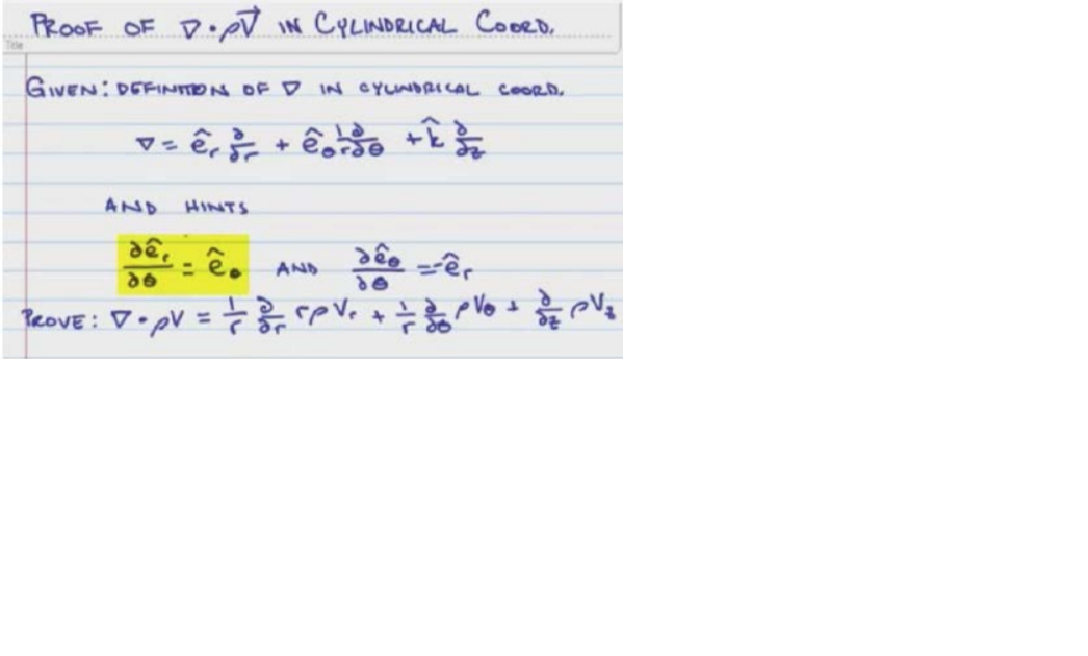 PROOF OF ∇·ρV⃗ IN CYLINDRICAL COORD.
Title
GIVEN: DEFINITION OF ∇ IN CYLINDRICAL COORD.
∇ = ê_r ∂/∂r + ê_θ 1/r ∂/∂θ + k̂ ∂/∂z
AND HINTS
∂ê_r/∂θ = ê_θ AND ∂ê_θ/∂θ = -ê_r
PROVE: ∇·ρV = 1/r ∂/∂r rρV_r + 1/r ∂/∂θ ρV_θ + ∂/∂z ρV_z